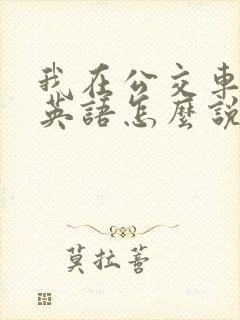 我在公交車
英語怎麼說
莫拉菩